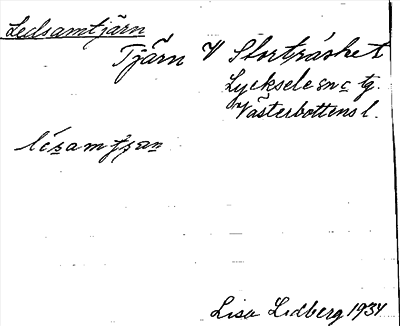 Ledsamtjärn
Tjärn V Storträsket
Lycksele sn o tg.
Västerbottens l.
lésamtjan
Lisa Lidberg 1934